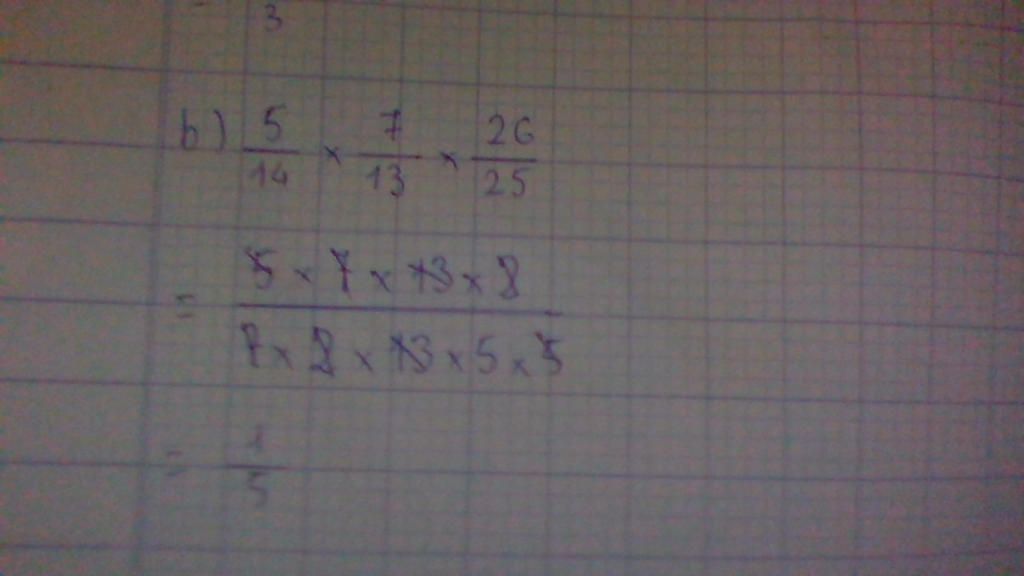 3
b) 5/14 × 7/13 × 26/25
= (5 × 7 × 13 × 2)/(7 × 2 × 13 × 5 × 5)
= 1/5